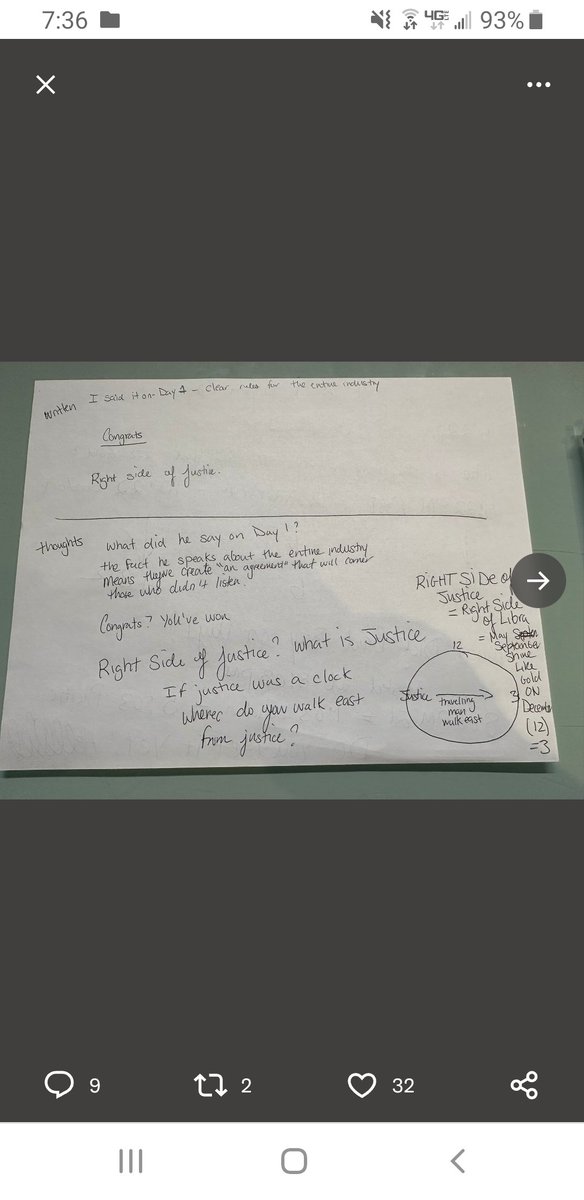 7:36
4G
93%
written I said it on Day 1 - clear rules for the entire industry
Congrats
Right side of justice.
thoughts what did he say on Day 1?
the fact he speaks about the entire industry
means theyve create "an agreement" that will corner
those who didn't listen.
Congrats? You've won
Right Side of justice? what is Justice
If justice was a clock
where do you walk east
from justice?
RIGHT SIDE of
Justice
= Right Side
of Libra
= May
September
Shine
Like
Gold
ON
December
(12)
=3
12
Justice
3
traveling
man
walk east
9
2
32